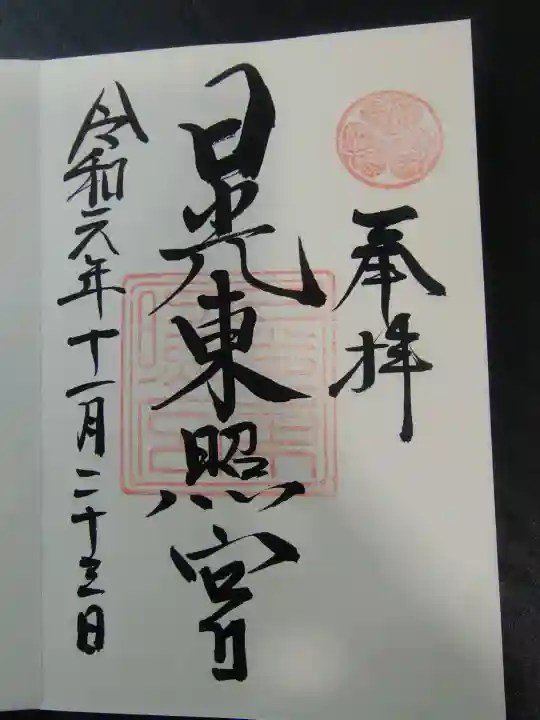 奉拝
日光東照宮
令和元年十一月二十三日